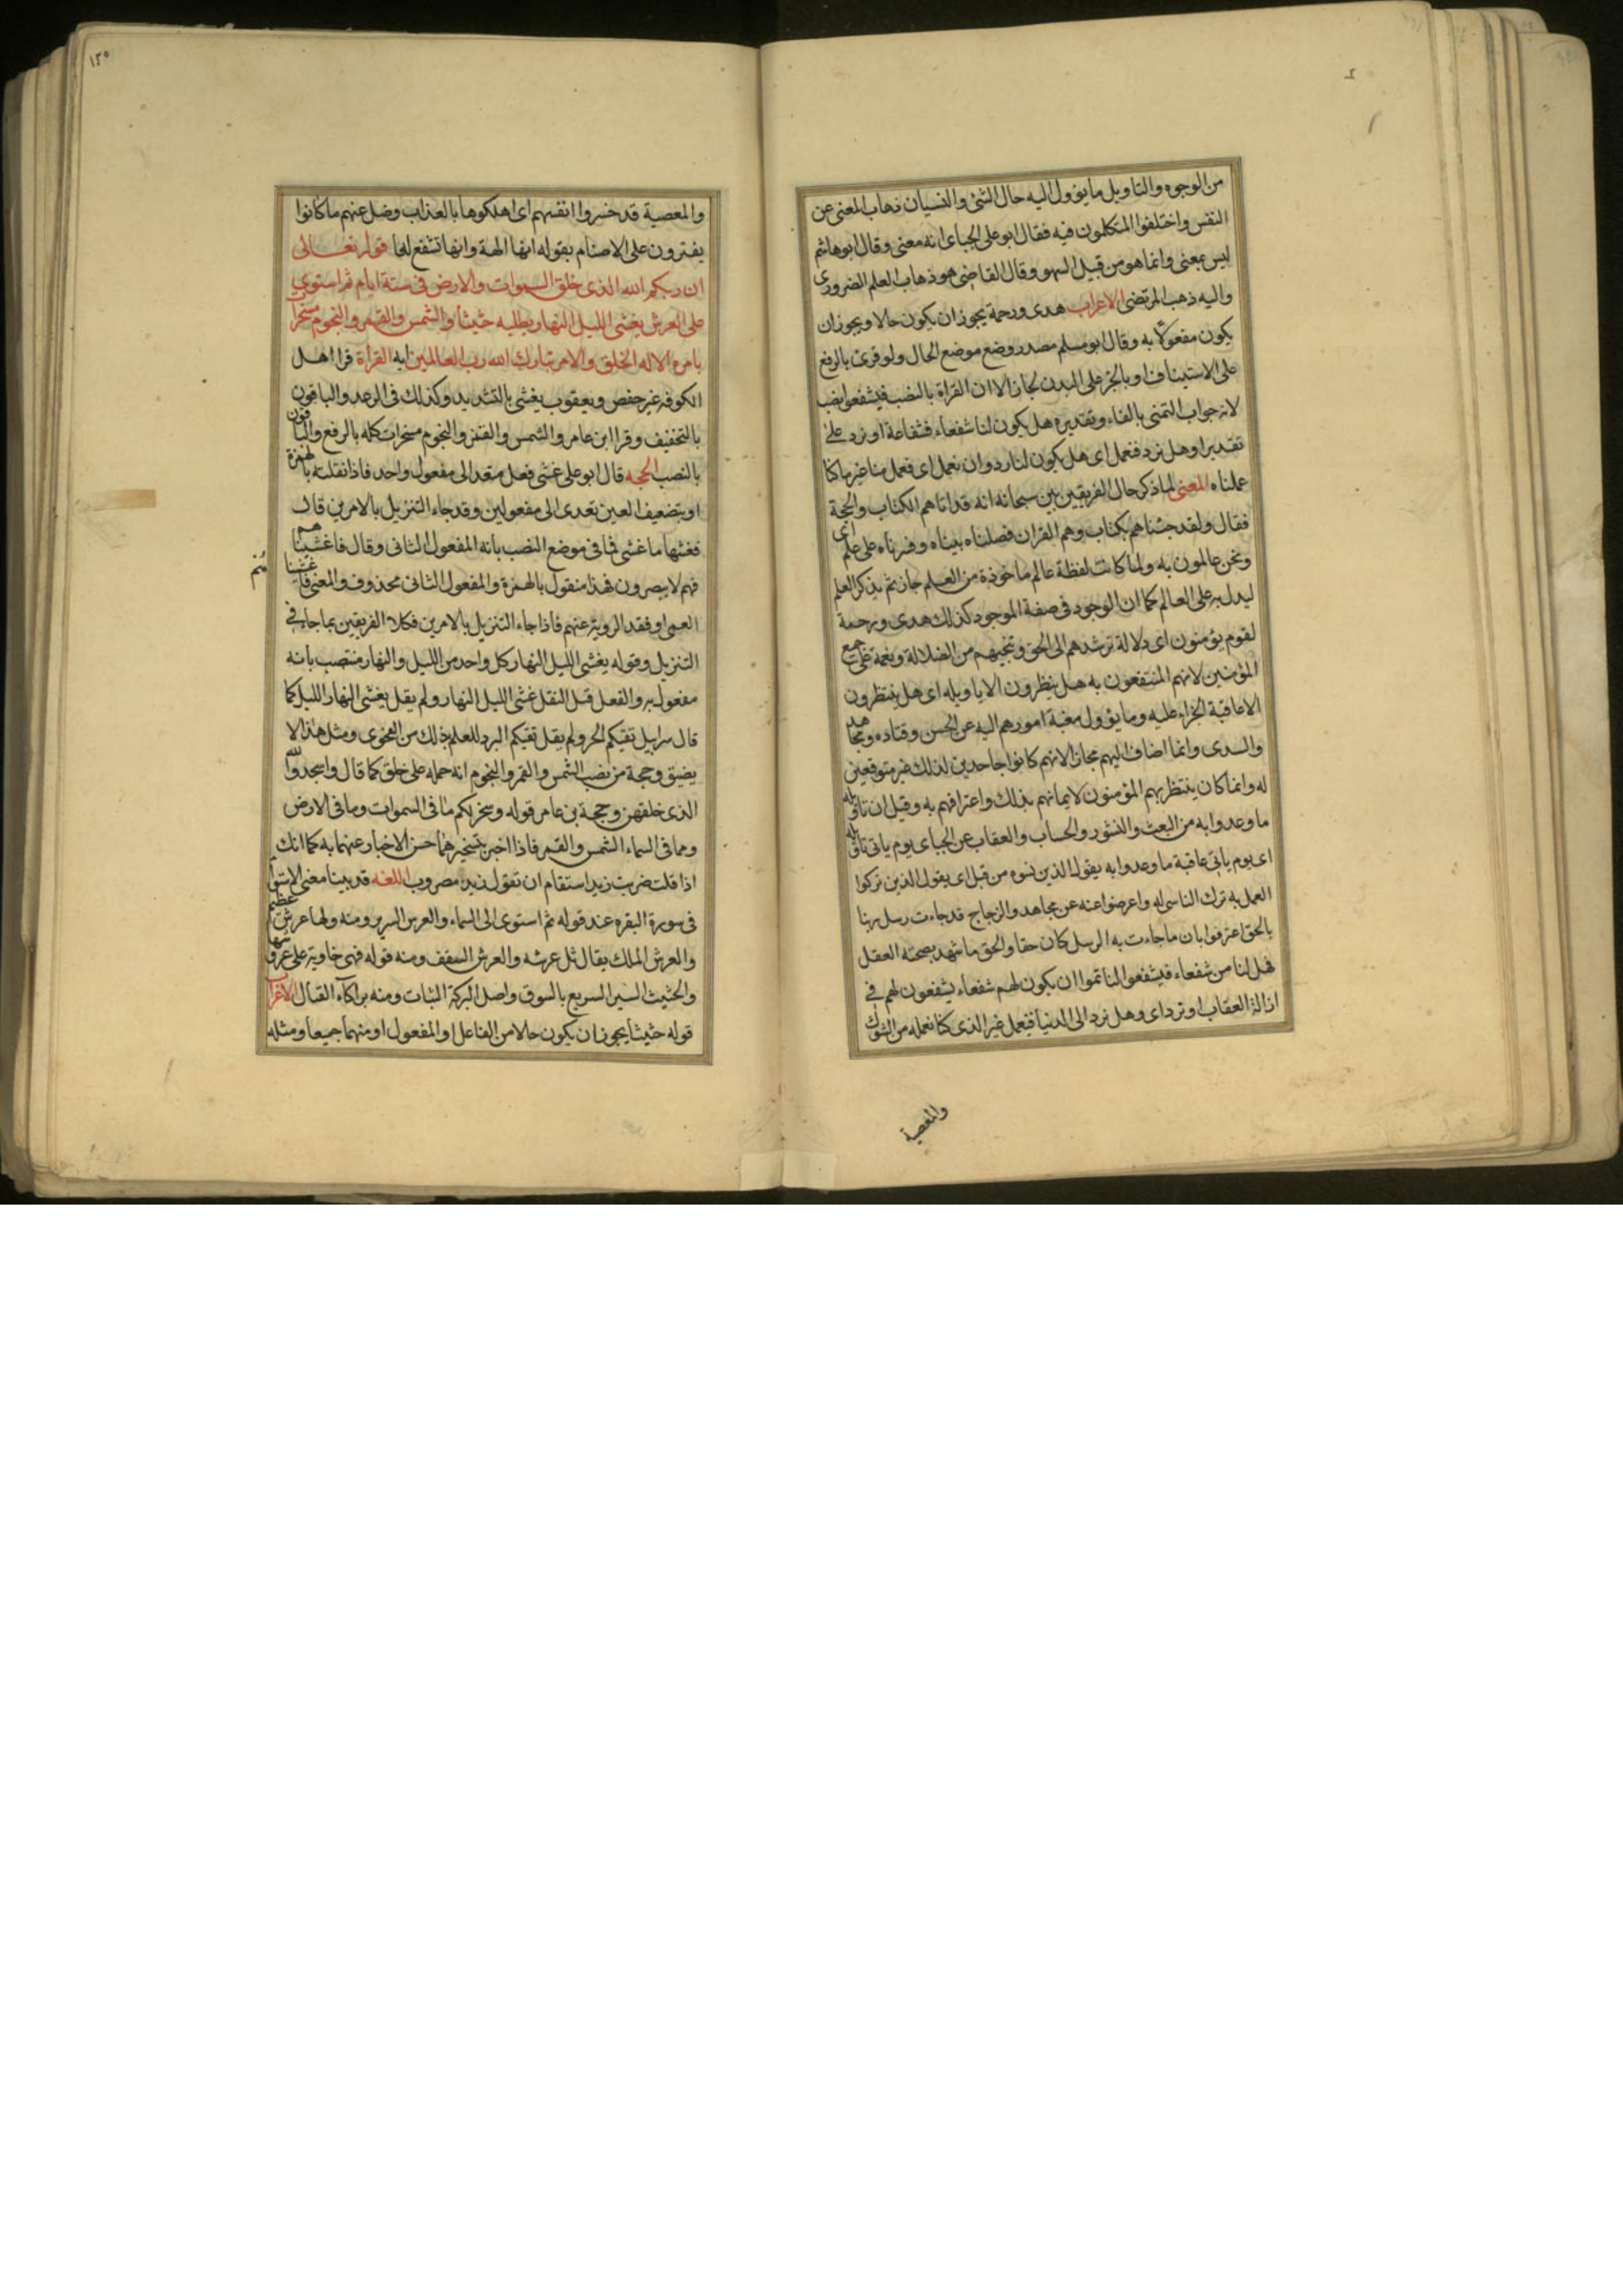 من الوجوه والتاويل ما يؤول اليه حال الشئ والنسيان ذهاب المعنى عن
النفس واختلفوا المتكلمون فيه فقال ابو على الجباى انه معنى وقال ابوهاشم
ليس بمعنى وانما هو من قبيل السهو وقال القاضى هو ذهاب العلم الضرورى
واليه ذهب المرتضى الاعراب هدى ورحمة يجوز ان يكون حالا ويجوز ان
يكون مفعولا به وقال ابو مسلم مصدر وضع موضع الحال ولو قرئ بالرفع
على الاستيناف او بالجر على البدل لجاز الا ان القراة بالنصب فيشفعوا نصب
لانه جواب التمنى بالفاء وتقديره هل يكون لنا شفعاء فشفاعة او نرد على
تقدير او هل نرد فنعمل اى هل يكون لنا رد وان نعمل اى فعمل منا غير ما كنا
عملناه المعنى لما ذكر حال الفريقين بين سبحانه انه قد اتاهم الكتاب والحجة
فقال ولقد جئناهم بكتاب وهو القران فصلناه بيناه وفسرناه على علم اى
ونحن عالمون به ولما كانت لفظة عالم ماخوذة من العلم جاز ثم يذكر العلم
ليدل به على العالم كما ان الوجود فى صفة الموجود كذلك هدى ورحمة
لقوم يؤمنون اى دلالة ترشدهم الى الحق وتنجيهم من الضلالة ونعمة على جميع
المؤمنين لانهم المنتفعون به هل ينظرون الا تاويله اى هل ينتظرون
الا عاقبة الجزاء عليه وما يؤول مغبة امورهم اليه عن الحسن وقتاده ومجاهد
والسدى وانما اضاف اليهم مجازا لانهم كانوا جاحدين لذلك غير متوقعين
له وانما كان ينتظر بهم المؤمنون لايمانهم بذلك واعترافهم به وقيل ان تاويله
ما وعدوا به من البعث والنشور والحساب والعقاب عن الجباى يوم ياتى تاويله
اى يوم ياتى عاقبة ما وعدوا به يقول الذين نسوه من قبل اى يقول الذين تركوا
العمل به ترك الناسى له واعرضوا عنه عن مجاهد والزجاج قد جاءت رسل ربنا
بالحق اعترفوا بان ما جاءت به الرسل كان حقا والحق ما شهد بصحته العقل
فهل لنا من شفعاء فيشفعوا لنا تمنوا ان يكون لهم شفعاء يشفعون لهم فى
ازالة العقاب او نرد اى وهل نرد الى الدنيا فنعمل غير الذى كنا نعمله من الشرك
والمعصية
١٢٥
والمعصية قد خسروا انفسهم اى اهلكوها بالعذاب وضل عنهم ما كانوا
يفترون على الاصنام بقوله انها الهة وانها تشفع لها قوله تعالى
ان ربكم الله الذى خلق السموات والارض فى ستة ايام ثم استوى
على العرش يغشى الليل النهار يطلبه حثيثا والشمس والقمر والنجوم مسخرات
بامره الا له الخلق والامر تبارك الله رب العالمين ايه القراة قرا اهل
الكوفه غير حفص ويعقوب يغشى بالتشديد وكذلك فى الرعد والباقون
بالتخفيف وقرا ابن عامر والشمس والقمر والنجوم مسخرات كله بالرفع والباقون
بالنصب الحجه قال ابو على غشى فعل متعد الى مفعول واحد فاذا نقلته بالهمزة
او بتضعيف العين تعدى الى مفعولين وقد جاء التنزيل بالامرين قال
فغشها ما غشى فما فى موضع النصب بانه المفعول الثانى وقال فاغشيناهم
فهم لا يبصرون فهذا منقول بالهمزة والمفعول الثانى محذوف والمعنى فاغشيناهم
العمى او فقد الروية عنهم فاذا جاء التنزيل بالامرين فكلا الفريقين بما جاء فى
التنزيل وقوله يغشى الليل النهار كل واحد من الليل والنهار منتصب بانه
مفعول به والفعل قبل النقل غشى الليل النهار ولم يقل يغشى النهار الليل كما
قال سرابيل تقيكم الحر ولم يقل تقيكم البرد للعلم بذلك من الفحوى ومثل هذا لا
يضيق وحجة من نصب الشمس والقمر والنجوم انه حمله على خلق كما قال واسجدوا لله
الذى خلقهن وحجة بن عامر قوله وسخر لكم ما فى السموات وما فى الارض
ومما فى السماء الشمس والقمر فاذا اخبر بتسخيرهما حسن الاخبار عنهما به كما انك
اذا قلت ضربت زيدا استقام ان تقول زيد مضروب اللغه قد بينا معنى الاستوا
فى سورة البقره عند قوله ثم استوى الى السماء والعرش السرير ومنه ولها عرش عظيم
والعرش الملك يقال ثل عرشه والعرش السقف ومنه قوله فهى خاوية على عروشها
والحثيث السير السريع بالسوق واصل البركة الثبات ومنه براكاء القتال الاعراب
قوله حثيثا يجوز ان يكون حالا من الفاعل او المفعول او منهما جميعا ومثله